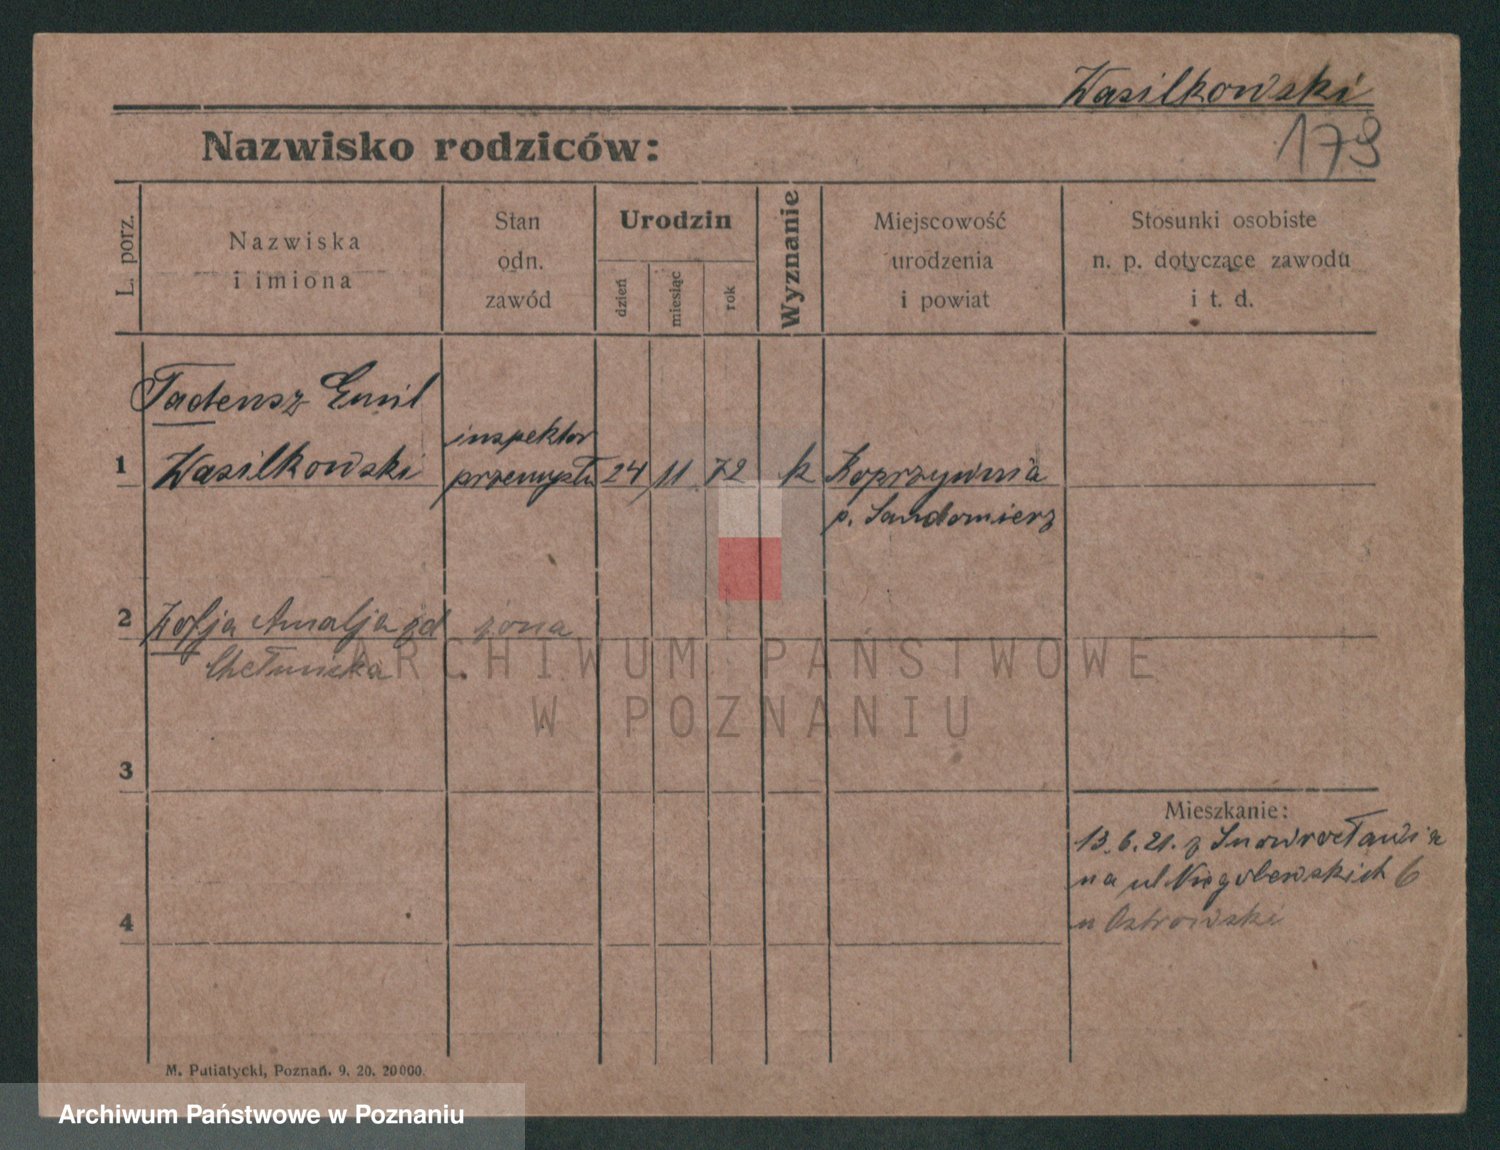 Wasilkowski
179
Nazwisko rodziców:
L. porz.
Nazwiska
i imiona
Stan
odn.
zawód
Urodzin
dzień
miesiąc
rok
Wyznanie
Miejscowość
urodzenia
i powiat
Stosunki osobiste
n. p. dotyczące zawodu
i t. d.
Tadeusz Emil
1 Wasilkowski
inspektor
przemysłu
24 11 72 k Koprzywnia
p. Sandomierz
2 Zofja Amalja żona
3
Mieszkanie:
13.6.21. z Inowrocławia
na ul Niegolewskich 6
u Ostrowski
4
M. Putiatycki, Poznań. 9. 20. 20000.
ARCHIWUM PAŃSTWOWE
W POZNANIU
Archiwum Państwowe w Poznaniu